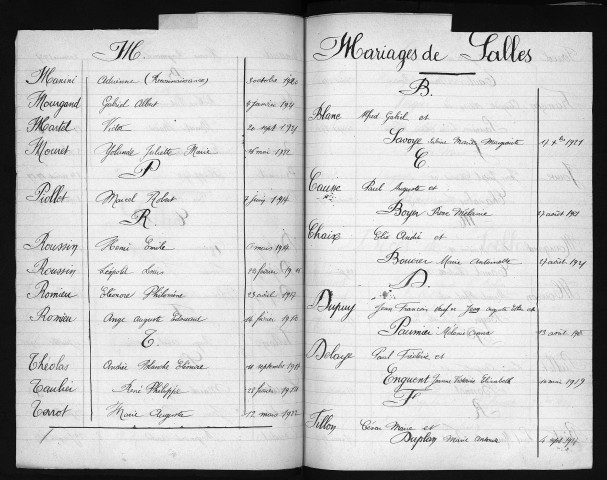 M.
Manini Adrienne (Reconnaissance) 3 octobre
Mourgand Gabriel Albert 4 janvier 1921
Martel Victor 20 sept 1921
Mouret Yolande Juliette Marie mai 1922
P
Piollet Marcel Robert 7 juin 1914
R.
Roussin Henri Emile mars
Roussin Léopold Louis 20 février
Romieu Eléonore Philomène 23 avril
Romieu Ange Auguste Edouard 16 février
T
Théolas Andrée Blanche septembre
Taulier René Philippe février
Terrot Marie Augusta 12 mars 1922
Mariages de Salles
B.
Blanc Alfred Gabriel et
Savoye Marie Marguerite 17 1921
C
Causse Paul Auguste et
Boyer Rose Mélanie 27 août 1921
Chaix Elie André et
Bouvier Marie Antoinette 27 août 1921
D.
Dupuy Jean François et
Paumier Mélanie 13 avril
Delaye Paul Frédéric et
Enguent Jeanne Victorine Elisabeth 10 mai 1919
F
Fillon César Marie et
Duplan Marie 4 sept